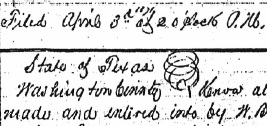 Filed April 3rd at 2 o'clock P.M.
State of Texas
Washington County Know al
made and entired into by W. B